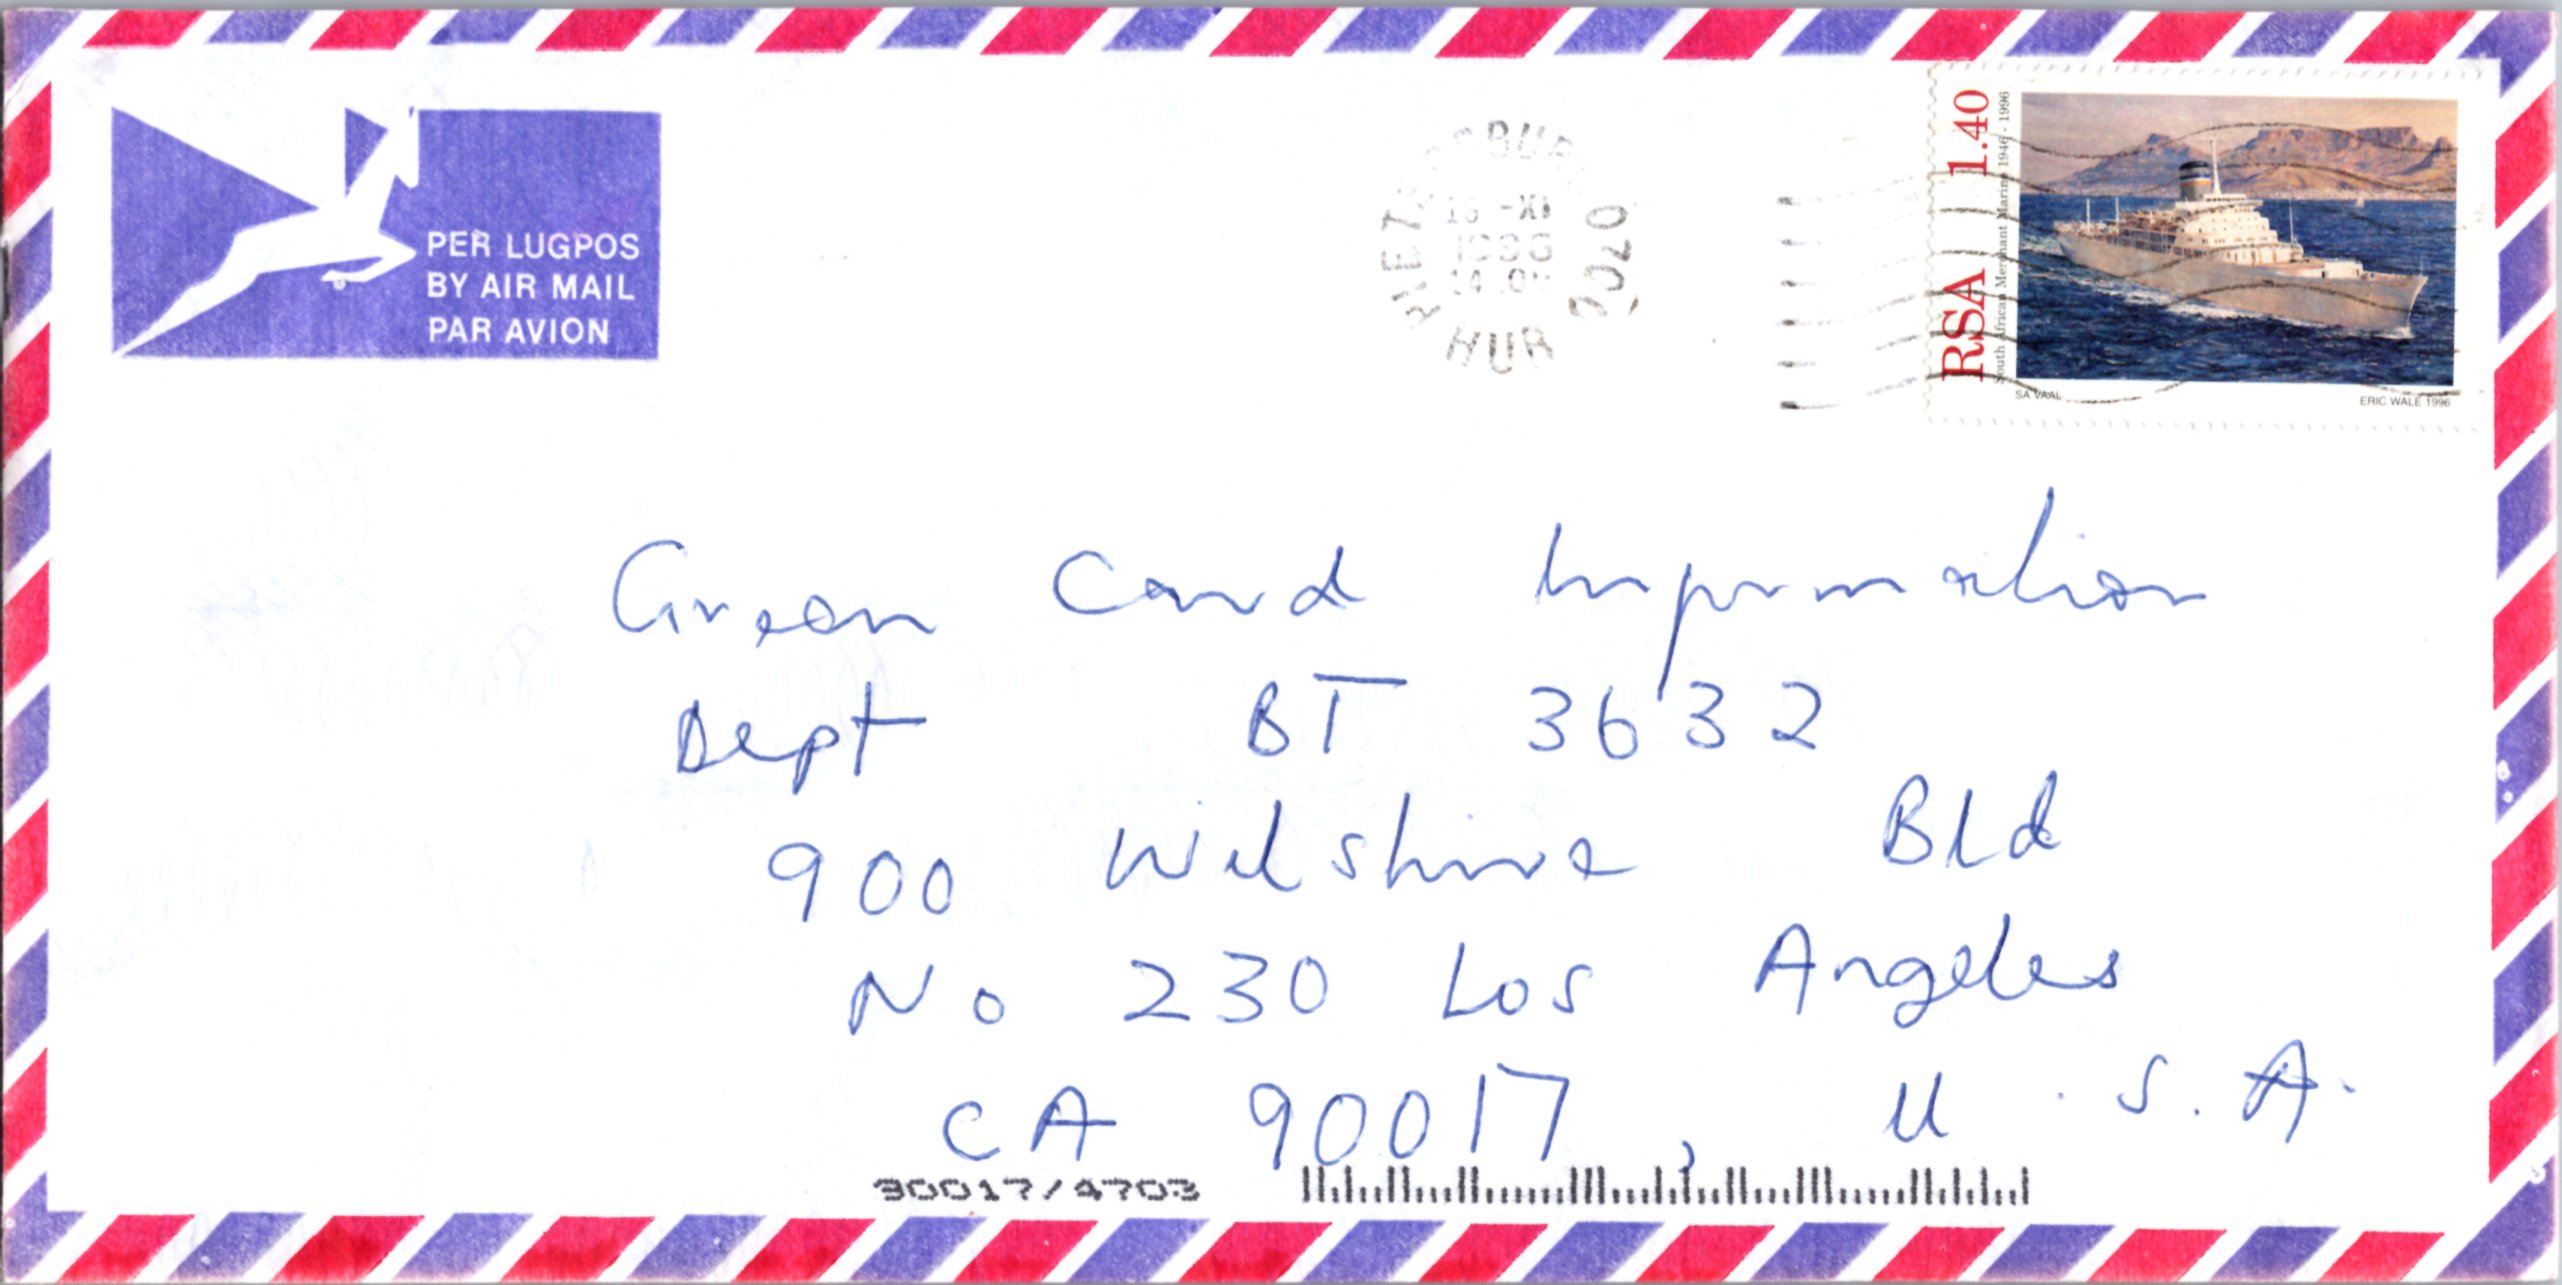 PER LUGPOS
BY AIR MAIL
PAR AVION
1996
0700
RSA 1.40
South African Merchant Marine 1946 - 1996
SA VAAL
ERIC WALE 1996
Green Card Information
Dept BT 3632
900 Wilshire Bld
No 230 Los Angeles
CA 90017, U.S.A.
90017/4703